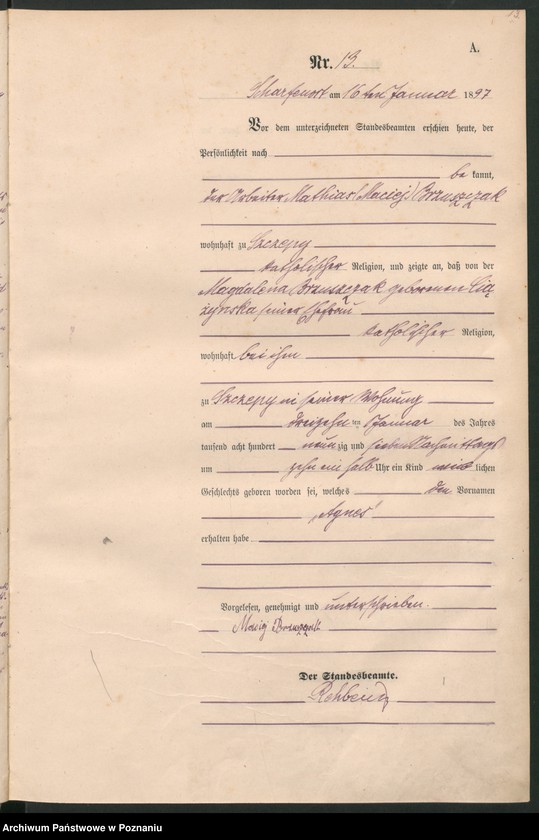 13
A.
Nr. 13.
Scharfenort am 16ten Januar 1897
Vor dem unterzeichneten Standesbeamten erschien heute, der
Persönlichkeit nach
be kannt,
der Arbeiter Mathias (Maciej) Brzuszczak
wohnhaft zu Szczepy
katholischer Religion, und zeigte an, daß von der
Magdalena Brzuszczak geborenen Cią
żynska seiner Ehefrau
katholischer Religion,
wohnhaft bei ihm
zu Szczepy in seiner Wohnung
am dreizehn ten Januar des Jahres
tausend acht hundert neun zig und sieben Nachmittags
um zehn ein halb Uhr ein Kind weib lichen
Geschlechts geboren worden sei, welches den Vornamen
„Agnes“
erhalten habe
Vorgelesen, genehmigt und unterschrieben.
Maciej
Der Standesbeamte.
Rehbein
Archiwum Państwowe w Poznaniu